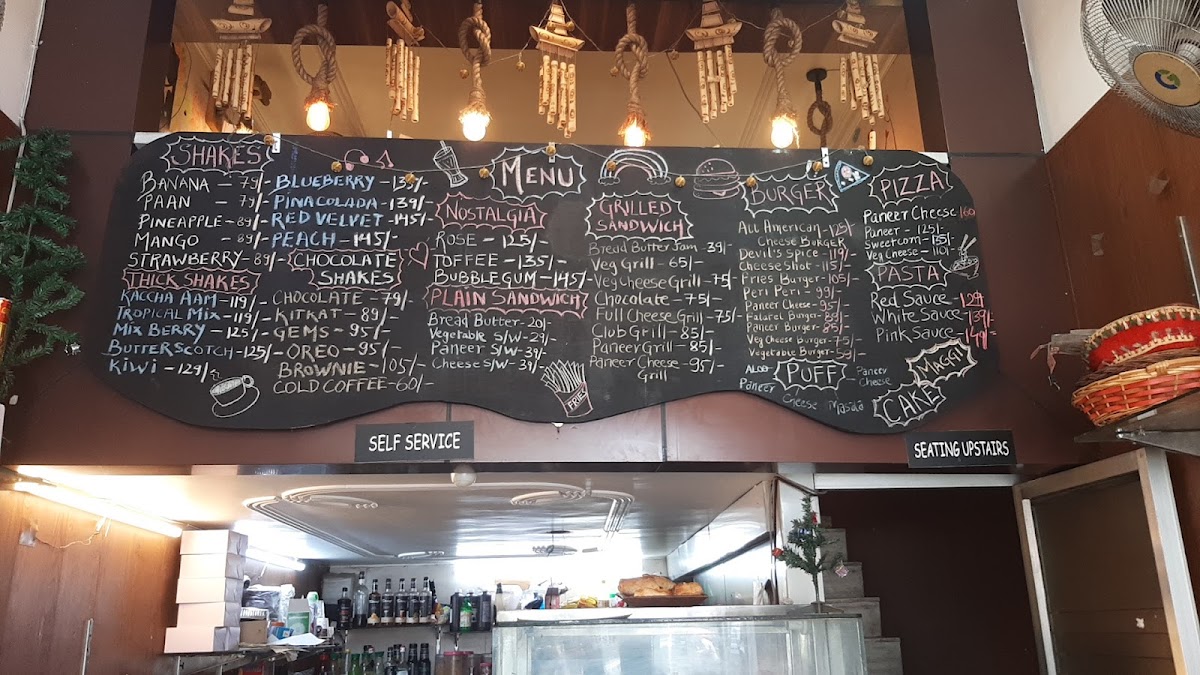 SHAKES
BANANA - 79/-
PAAN - 79/-
PINEAPPLE - 89/-
MANGO - 89/-
STRAWBERRY - 89/-
THICK SHAKES
KACCHA AAM - 119/-
TROPICAL MIX - 119/-
MIX BERRY - 125/-
BUTTERSCOTCH - 125/-
KIWI - 129/-
BLUEBERRY - 135/-
PINACOLADA - 139/-
RED VELVET - 145/-
PEACH - 145/-
CHOCOLATE
SHAKES
CHOCOLATE - 79/-
KITKAT - 89/-
GEMS - 95/-
OREO - 95/-
BROWNIE - 105/-
COLD COFFEE - 60/-
MENU
NOSTALGIA
ROSE - 125/-
TOFFEE - 135/-
BUBBLEGUM - 145/-
PLAIN SANDWICH
Bread Butter - 20/-
Vegetable S/W - 29/-
Paneer S/W - 39/-
Cheese S/W - 39/-
FRIES
GRILLED
SANDWICH
Bread Butter Jam - 39/-
Veg Grill - 65/-
Veg Cheese Grill - 75/-
Chocolate - 75/-
Full Cheese Grill - 75/-
Club Grill - 85/-
Paneer Grill - 85/-
Paneer Cheese - 95/-
Grill
BURGER
All American - 125/-
Cheese Burger
Devil's Spice - 119/-
Cheese Shot - 115/-
Fries Burger - 105/-
Peri Peri - 99/-
Paneer Cheese - 95/-
Burger - 89/-
Paneer Burger - 85/-
Veg Cheese Burger - 75/-
Vegetable Burger - 59/-
ALSO PUFF - Paneer
Cheese
Paneer Cheese Masala
PIZZA
Paneer Cheese 160
Paneer - 125/-
Sweetcorn - 135/-
Veg Cheese - 110/-
PASTA
Red Sauce - 129
White Sauce - 139/-
Pink Sauce - 149/-
MAGGI
CAKE
SELF SERVICE
SEATING UPSTAIRS